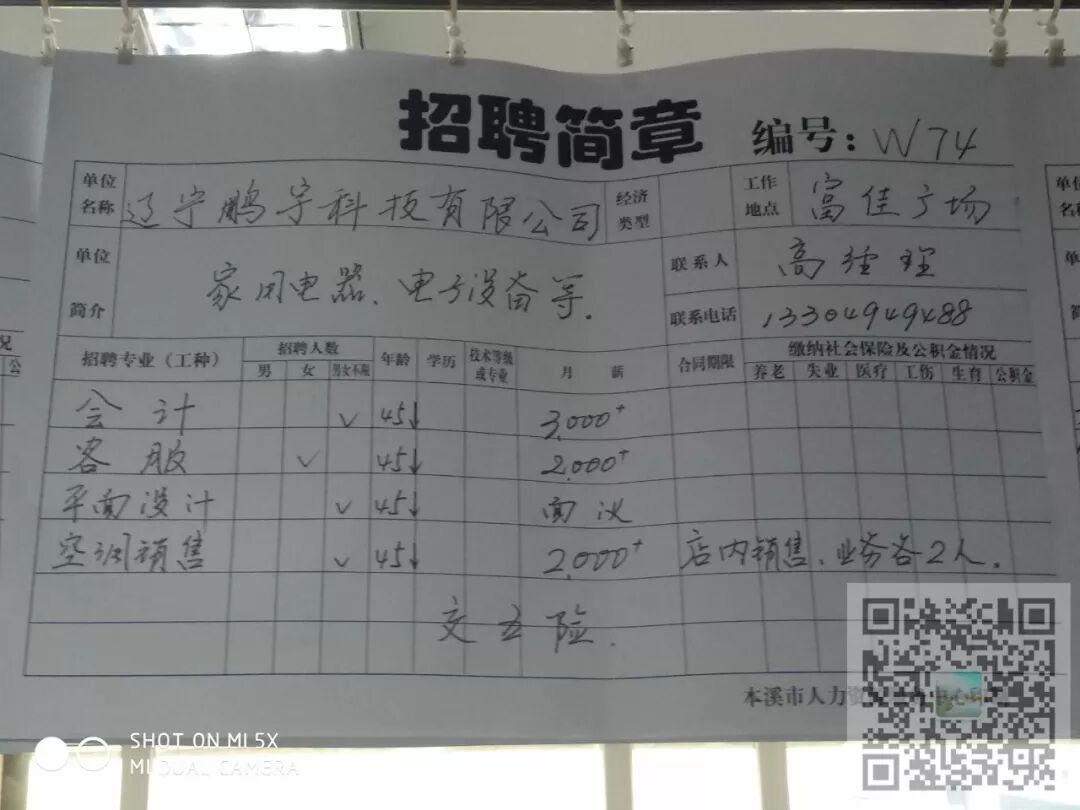 招聘简章 编号：W74
单位名称 辽宁鹏宇科技有限公司 经济类型 工作地点 富佳广场
单位简介 家用电器、电子设备等. 联系人 高经理
联系电话 13304949488
招聘专业（工种） 招聘人数 年龄 学历 技术等级或专业 月薪 合同期限 缴纳社会保险及公积金情况
男 女 男女不限 养老 失业 医疗 工伤 生育 公积金
会计 ✓ 45↓ 3,000+
客服 ✓ 45↓ 2,000+
平面设计 ✓ 45↓ 面议
空调销售 ✓ 45↓ 2,000+ 店内销售、业务各2人.
交五险.
本溪市人力资
SHOT ON MI 5X
MI DUAL CAMERA